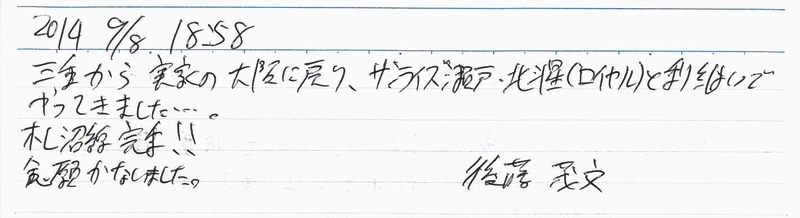 2014 9/8 18:58
三重から実家の大阪に戻り、サンライズ瀬戸・北斗星(ロイヤル)と乗り継いで
やってきました…。
札沼線完乗!!
念願かないました。 後藤 文